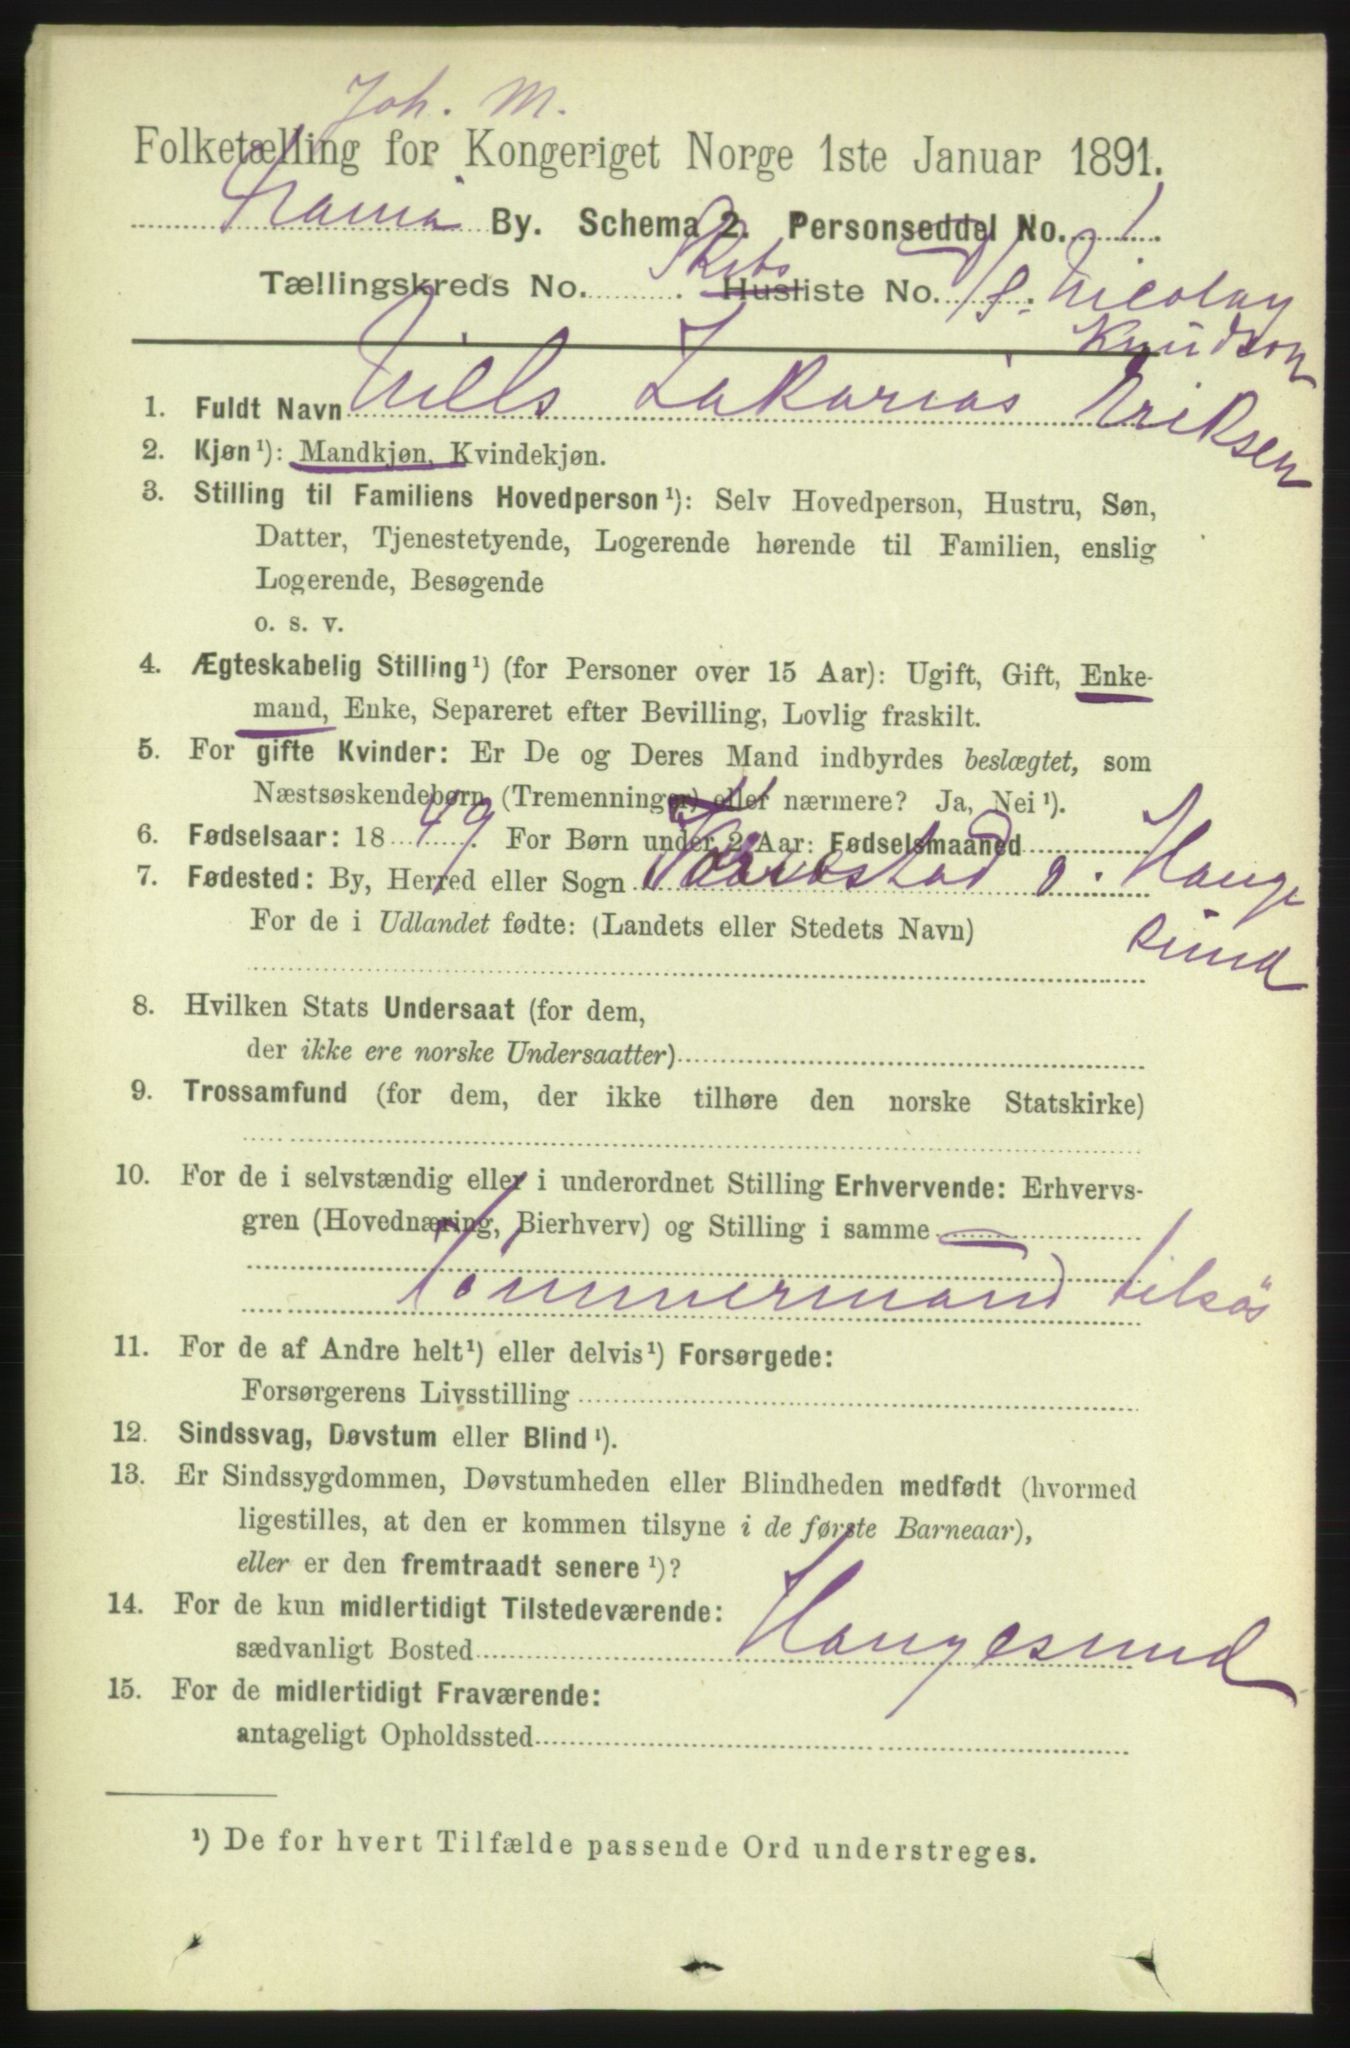 Joh. M.
Folketælling for Kongeriget Norge 1ste Januar 1891.
By. Schema 2. Personseddel No. 1.
Tællingskreds No. . Skibs Husliste No. D/S. Nicolay
Knudson
1. Fuldt Navn Nills Zakarias Eriksen
2. Kjøn¹): Mandkjøn, Kvindekjøn.
3. Stilling til Familiens Hovedperson¹): Selv Hovedperson, Hustru, Søn,
Datter, Tjenestetyende, Logerende hørende til Familien, enslig
Logerende, Besøgende
o. s. v.
4. Ægteskabelig Stilling¹) (for Personer over 15 Aar): Ugift, Gift, Enke-
mand, Enke, Separeret efter Bevilling, Lovlig fraskilt.
5. For gifte Kvinder: Er De og Deres Mand indbyrdes beslægtet, som
Næstsøskendebørn (Tremenninger) eller nærmere? Ja, Nei¹).
6. Fødselsaar: 18 49. For Børn under 2 Aar: Fødselsmaaned
7. Fødested: By, Herred eller Sogn Hauge
sund
For de i Udlandet fødte: (Landets eller Stedets Navn)
8. Hvilken Stats Undersaat (for dem,
der ikke ere norske Undersaatter)
9. Trossamfund (for dem, der ikke tilhøre den norske Statskirke)
10. For de i selvstændig eller i underordnet Stilling Erhvervende: Erhvervs-
gren (Hovednæring, Bierhverv) og Stilling i samme
Tømmermand tilsøs
11. For de af Andre helt¹) eller delvis¹) Forsørgede:
Forsørgerens Livsstilling
12. Sindssvag, Døvstum eller Blind¹).
13. Er Sindssygdommen, Døvstumheden eller Blindheden medfødt (hvormed
ligestilles, at den er kommen tilsyne i de første Barneaar),
eller er den fremtraadt senere¹)?
14. For de kun midlertidigt Tilstedeværende:
sædvanligt Bosted Haugesund
15. For de midlertidigt Fraværende:
antageligt Opholdssted
¹) De for hvert Tilfælde passende Ord understreges.